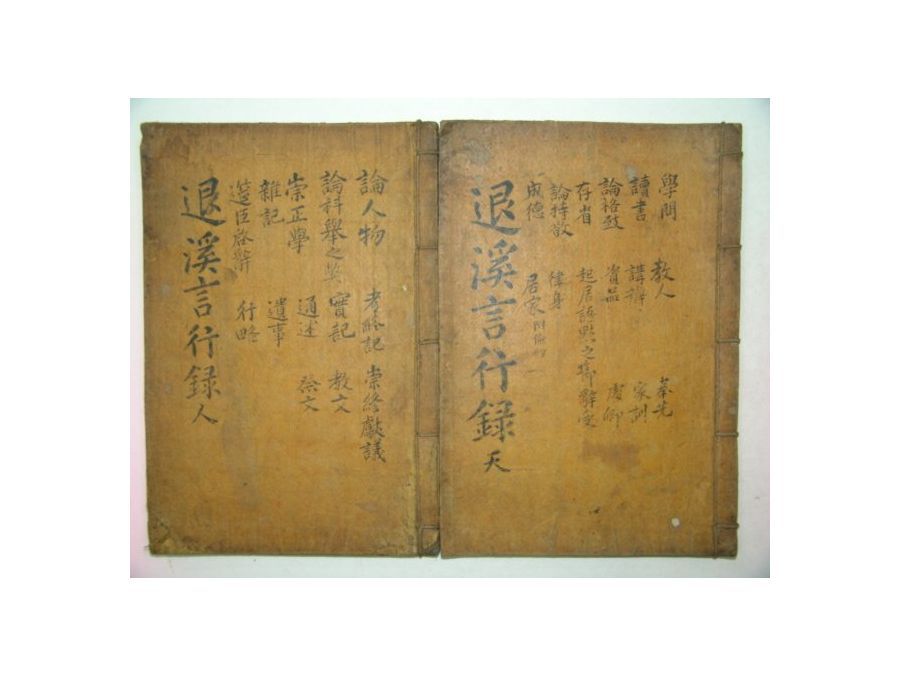 學問 教人 奉先
讀書 講辨 家訓
論格致 資品 處鄉
存省 起居語默之節 辭受
論持敬 律身
成德 居家
退溪言行錄 天
論人物 考終記 崇終獻議
論科舉之弊 實記 教文
崇正學 通述 祭文
雜記 遺事
筵臣啓辭 行略
退溪言行錄 人